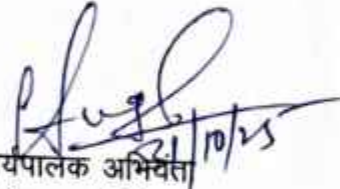 21/10/25
र्यपालक अभियंता